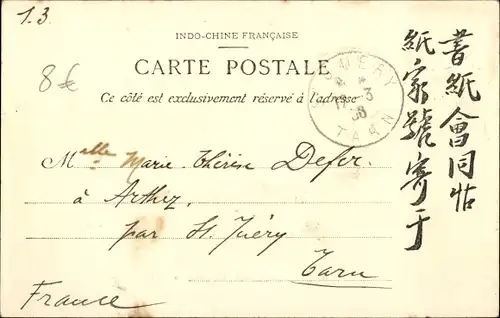 1.3
8€
INDO-CHINE FRANÇAISE
CARTE POSTALE
Ce côté est exclusivement réservé à l'adresse
JUÉRY
3
TARN
Melle Marie-Thérèse Defer.
à Arthez,
par St. Juéry
Tarn
France
書紙會同帖
紙家號寄于